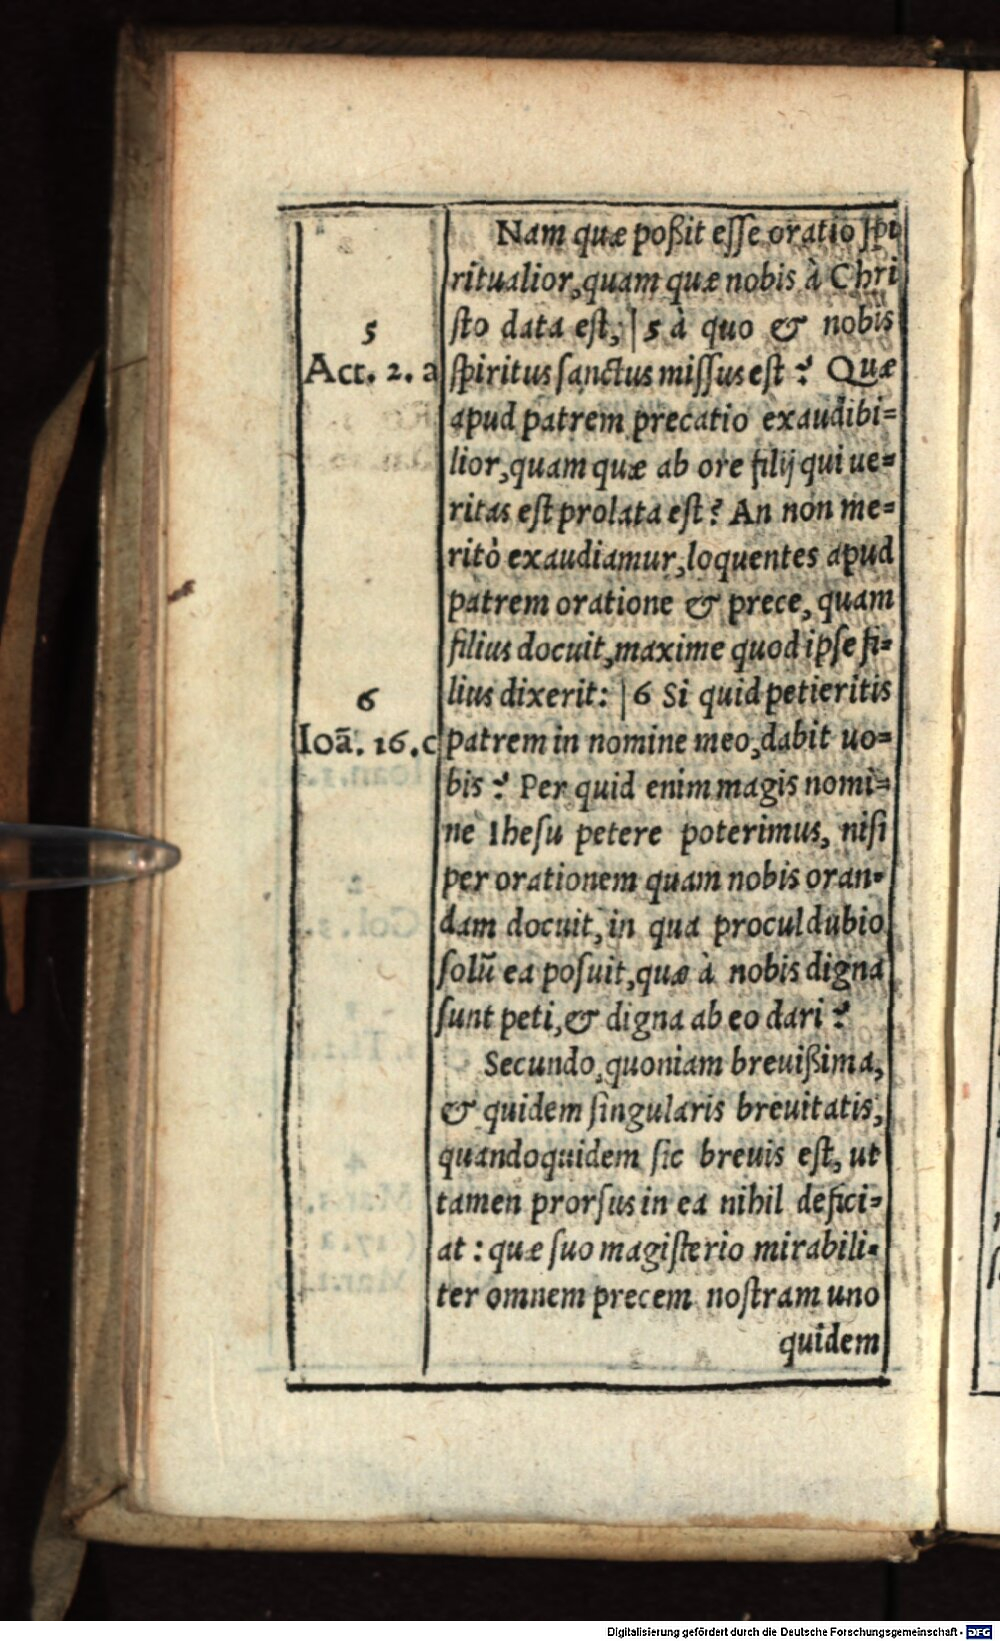 Nam quæ poßit eſſe oratio ſpi
ritualior, quam quæ nobis à Chri
ſto data eſt, | 5 à quo & nobis
ſpiritus ſanctus miſſus eſt? Quæ
apud patrem precatio exaudibi=
lior, quam quæ ab ore filij qui ue=
ritas eſt prolata eſt? An non me=
ritò exaudiamur, loquentes apud
patrem oratione & prece, quam
filius docuit, maxime quod ipſe fi=
lius dixerit: | 6 Si quid petieritis
patrem in nomine meo, dabit uo=
bis? Per quid enim magis nomi=
ne Iheſu petere poterimus, niſi
per orationem quam nobis oran=
dam docuit, in qua procul dubio
ſolũ ea poſuit, quæ à nobis digna
ſunt peti, & digna ab eo dari?
Secundo, quoniam breuißima,
& quidem ſingularis breuitatis,
quandoquidem ſic breuis eſt, ut
tamen prorſus in ea nihil defici=
at: quæ ſuo magiſterio mirabili=
ter omnem precem noſtram uno
quidem
5
Act. 2. a
6
Ioã. 16. c
Digitalisierung gefördert durch die Deutsche Forschungsgemeinschaft - DFG